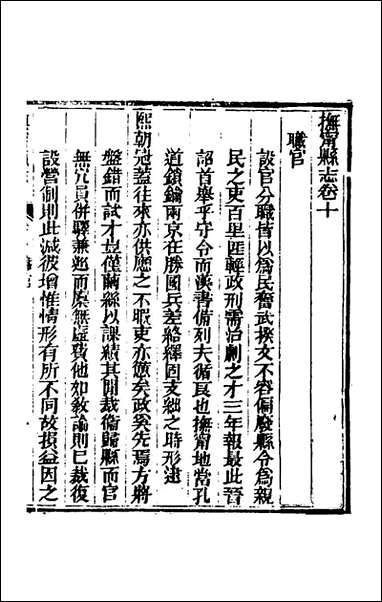 撫甯縣志卷十
職官
設官分職皆以爲民奮武揆文不容偏廢縣令爲親
民之吏百里匪輕政刑需治劇之才三年報最此晉
詔首舉乎守令而漢書備列夫循良也撫甯地當孔
道鎖鑰兩京在勝國兵差絡繹固支絀之時形逮
熙朝冠蓋往來亦供應之不暇吏亦憊矣政奚先焉方將
盤錯而試才豈僅繭絲以課績其閒裁衞歸縣而官
無冗員併驛兼廵而廩無虛費他如教諭則已裁復
設營制則此減彼增惟情形有所不同故損益因之